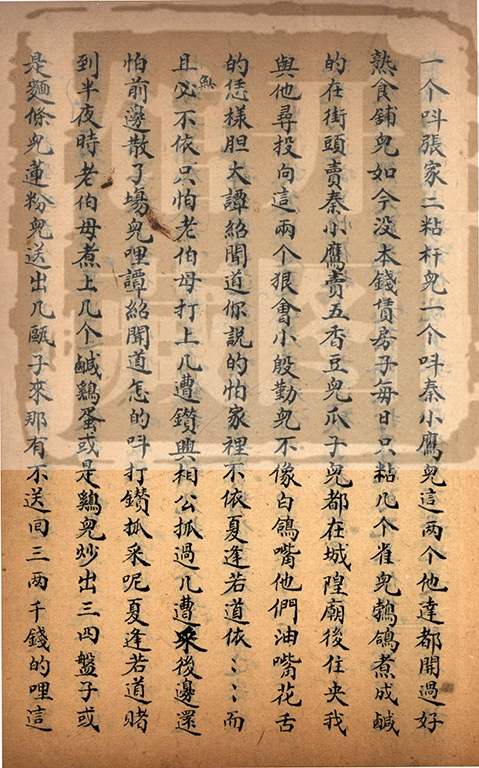 一个呌張家二粘杆兒一个呌秦小鷹兒這两个他達都開過好
熟食舖兒如今没本錢賃房子每日只粘几个雀兒鵓鴿煮成鹹
的在街頭賣秦小鷹賣五香豆兒瓜子兒都在城隍廟後住央我
與他尋投向這兩个狠會小殷勤兒不像白鴿嘴他們油嘴花舌
的恁様胆大譚紹聞道你說的怕家裡不依夏逢若道依⋮⋮而
且必不依只怕老伯母打上几遭鑽與相公抓過几遭采後邊還
怕前邊散了塲兒哩譚紹聞道怎的呌打鑽抓采呢夏逢若道賭
到半夜時老伯母煮上几个鹹鷄蛋或是鷄兒炒出三四盤子或
是麵條兒蓮粉兒送出几甌子來那有不送回三两千錢的哩這